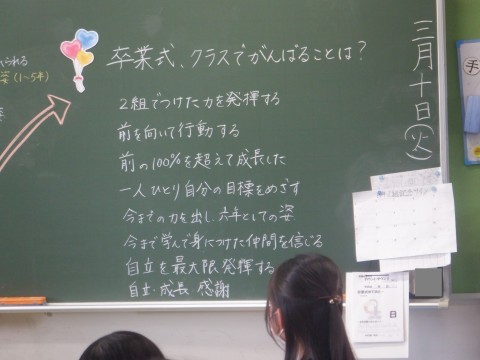 卒業式、クラスでがんばることは?
2組でつけた力を発揮する
前を向いて行動する
前の100%を超えて成長した
一人ひとり自分の目標をめざす
今までの力を出し、六年としての姿
今まで学んで身につけた仲間を信じる
自立を最大限発揮する
自立・成長 感謝
三月十日(火)
られる
姿(1~5年)
手
日